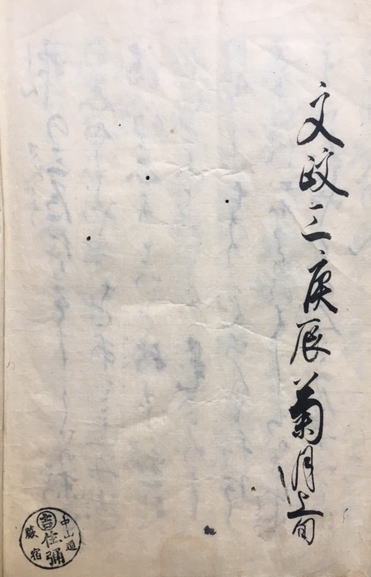 文政三庚辰菊月上旬
中山道
吉彌
蕨宿